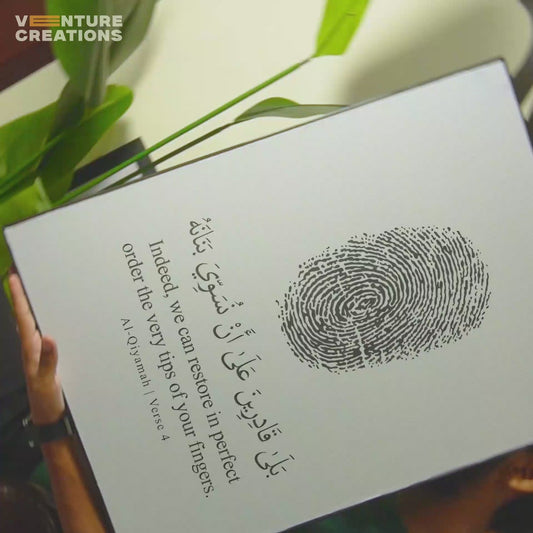 VENTURE
CREATIONS
بَلَىٰ قَادِرِينَ عَلَىٰ أَنْ نُسَوِّيَ بَنَانَهُ
Indeed, we can restore in perfect
order the very tips of your fingers.
Al-Qiyamah | Verse 4